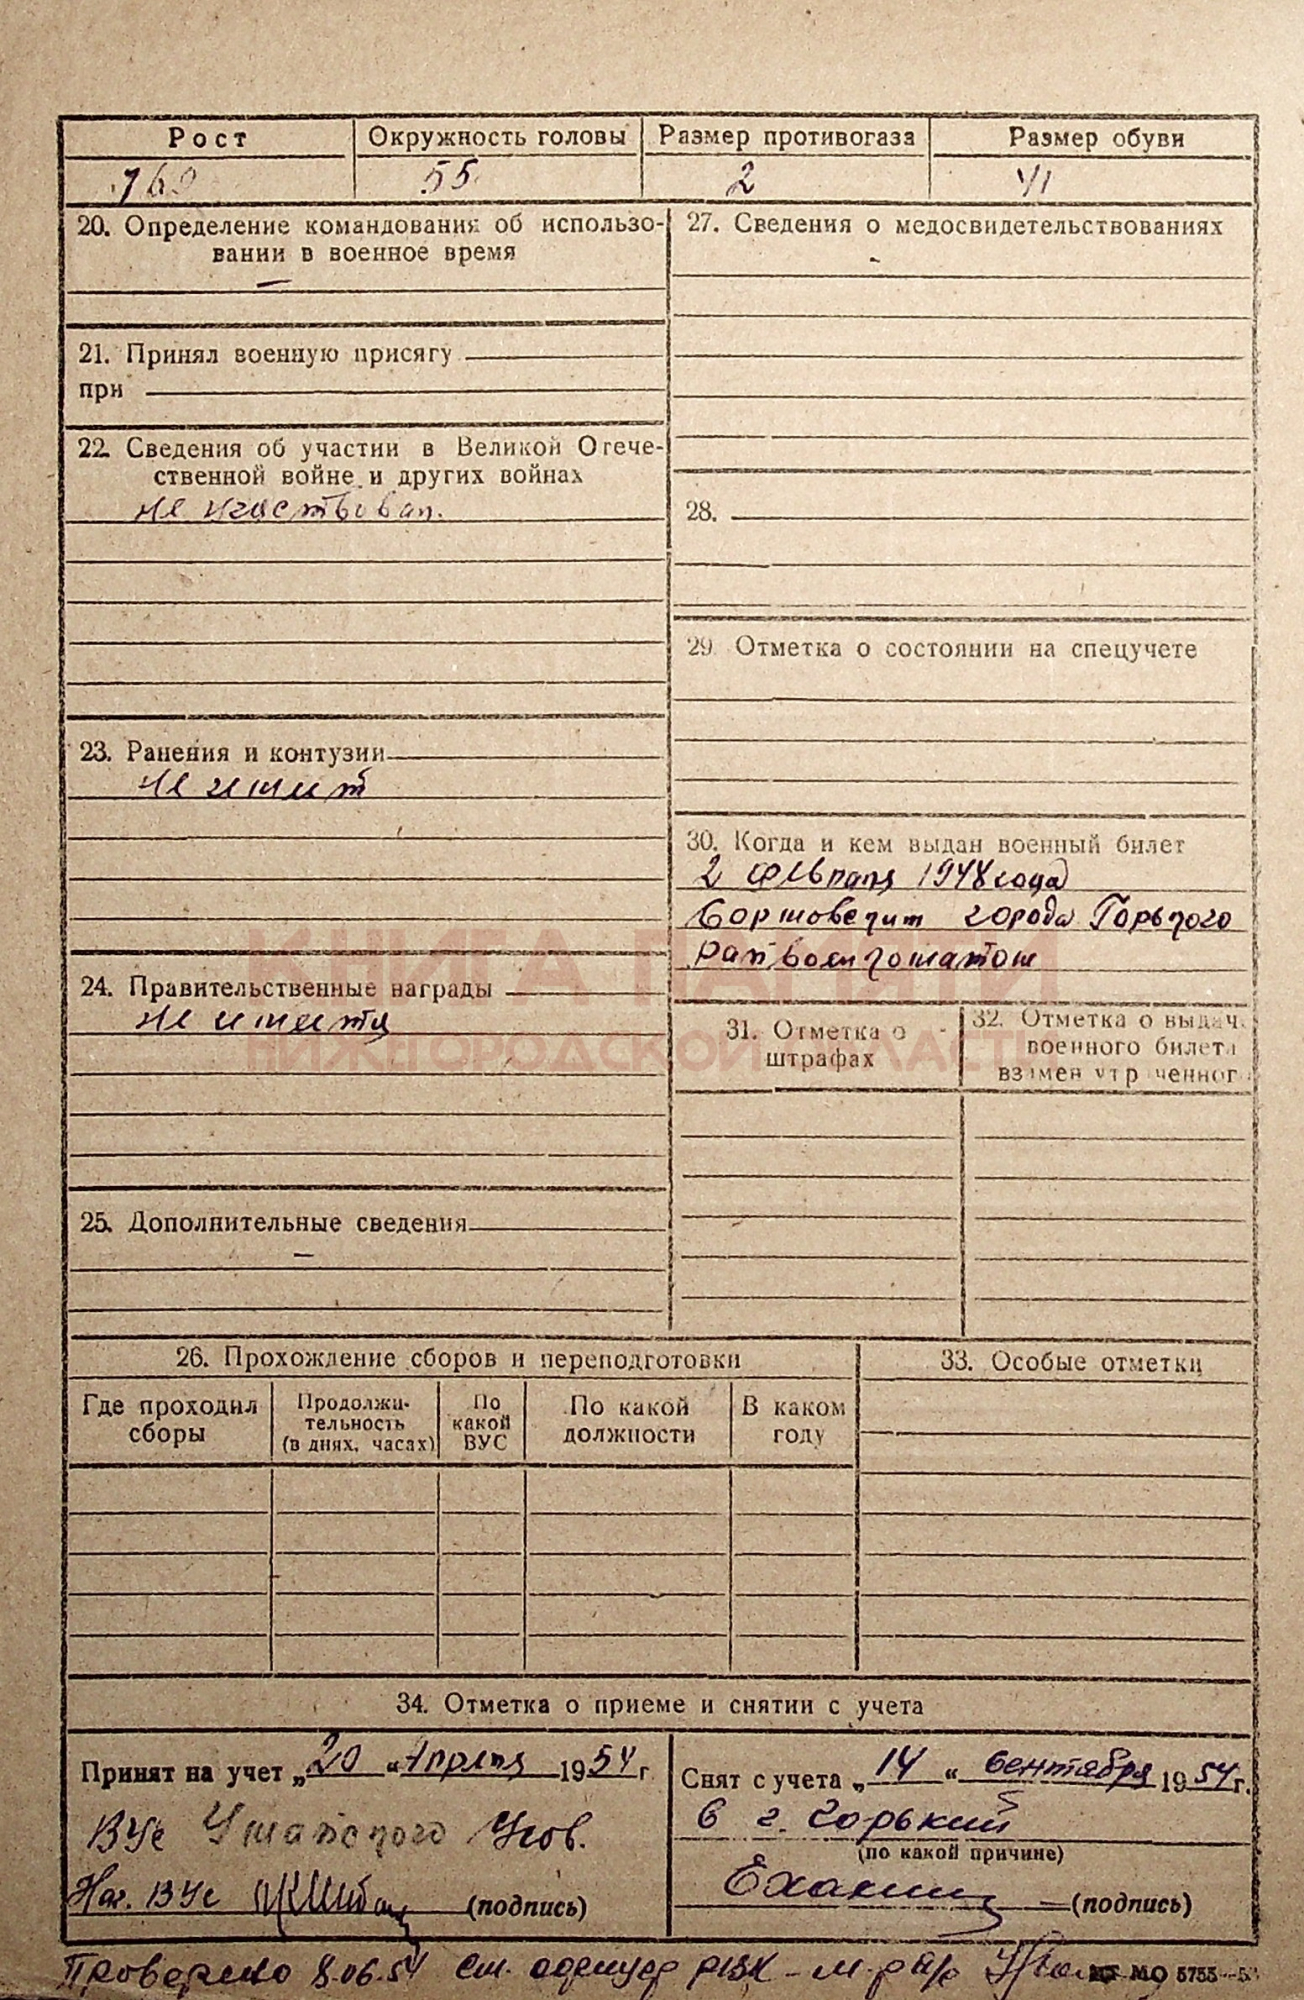 Рост
Окружность головы
Размер противогаза
Размер обуви
169
55
2
41
20. Определение командования об использо-
вании в военное время
—
21. Принял военную присягу
при
22. Сведения об участии в Великой Отече-
ственной войне и других войнах
не участвовал.
23. Ранения и контузии
не имеет
24. Правительственные награды
не имеет
25. Дополнительные сведения
—
27. Сведения о медосвидетельствованиях
28.
29. Отметка о состоянии на спецучете
30. Когда и кем выдан военный билет
2 февраля 1948 года
города Горького
Райвоенкоматом
31. Отметка о
штрафах
32. Отметка о выдач.
военного билета
взамен утраченног
КНИГА ПАМЯТИ
НИЖНЕГОРОДСКОЙ ОБЛАСТИ
26. Прохождение сборов и переподготовки
Где проходил
сборы
Продолжи-
тельность
(в днях, часах)
По
какой
ВУС
По какой
должности
В каком
году
33. Особые отметки
34. Отметка о приеме и снятии с учета
Принят на учет „20“ Апреля 1954 г.
ВУС
Нач. ВУС
(подпись)
Снят с учета „14“ сентября 1954 г.
в г. Горький
(по какой причине)
(подпись)
Проверено 8.06.54 ст. РВК
МО 5755—53